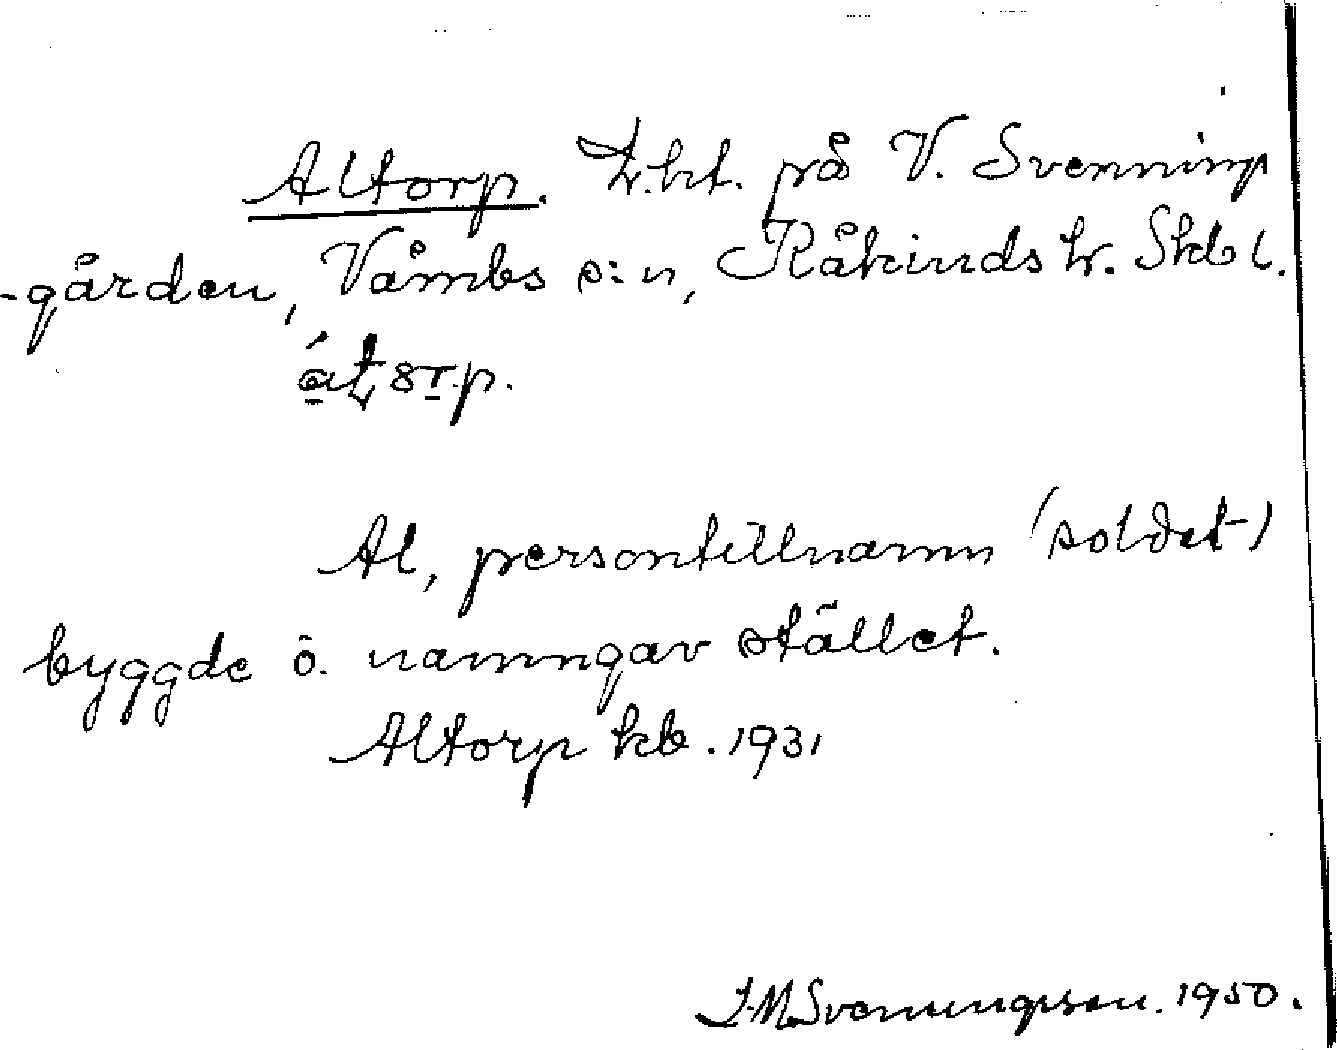 Altorp. t.brt. på V. Svennings
-gården, Våmbs s:n, Kåkinds hr. Skbl.
Al, persontillnamn (soldat)
byggde o. namngav stället.
Altorp kb. 1931
J.M. Svenungsson. 1950.